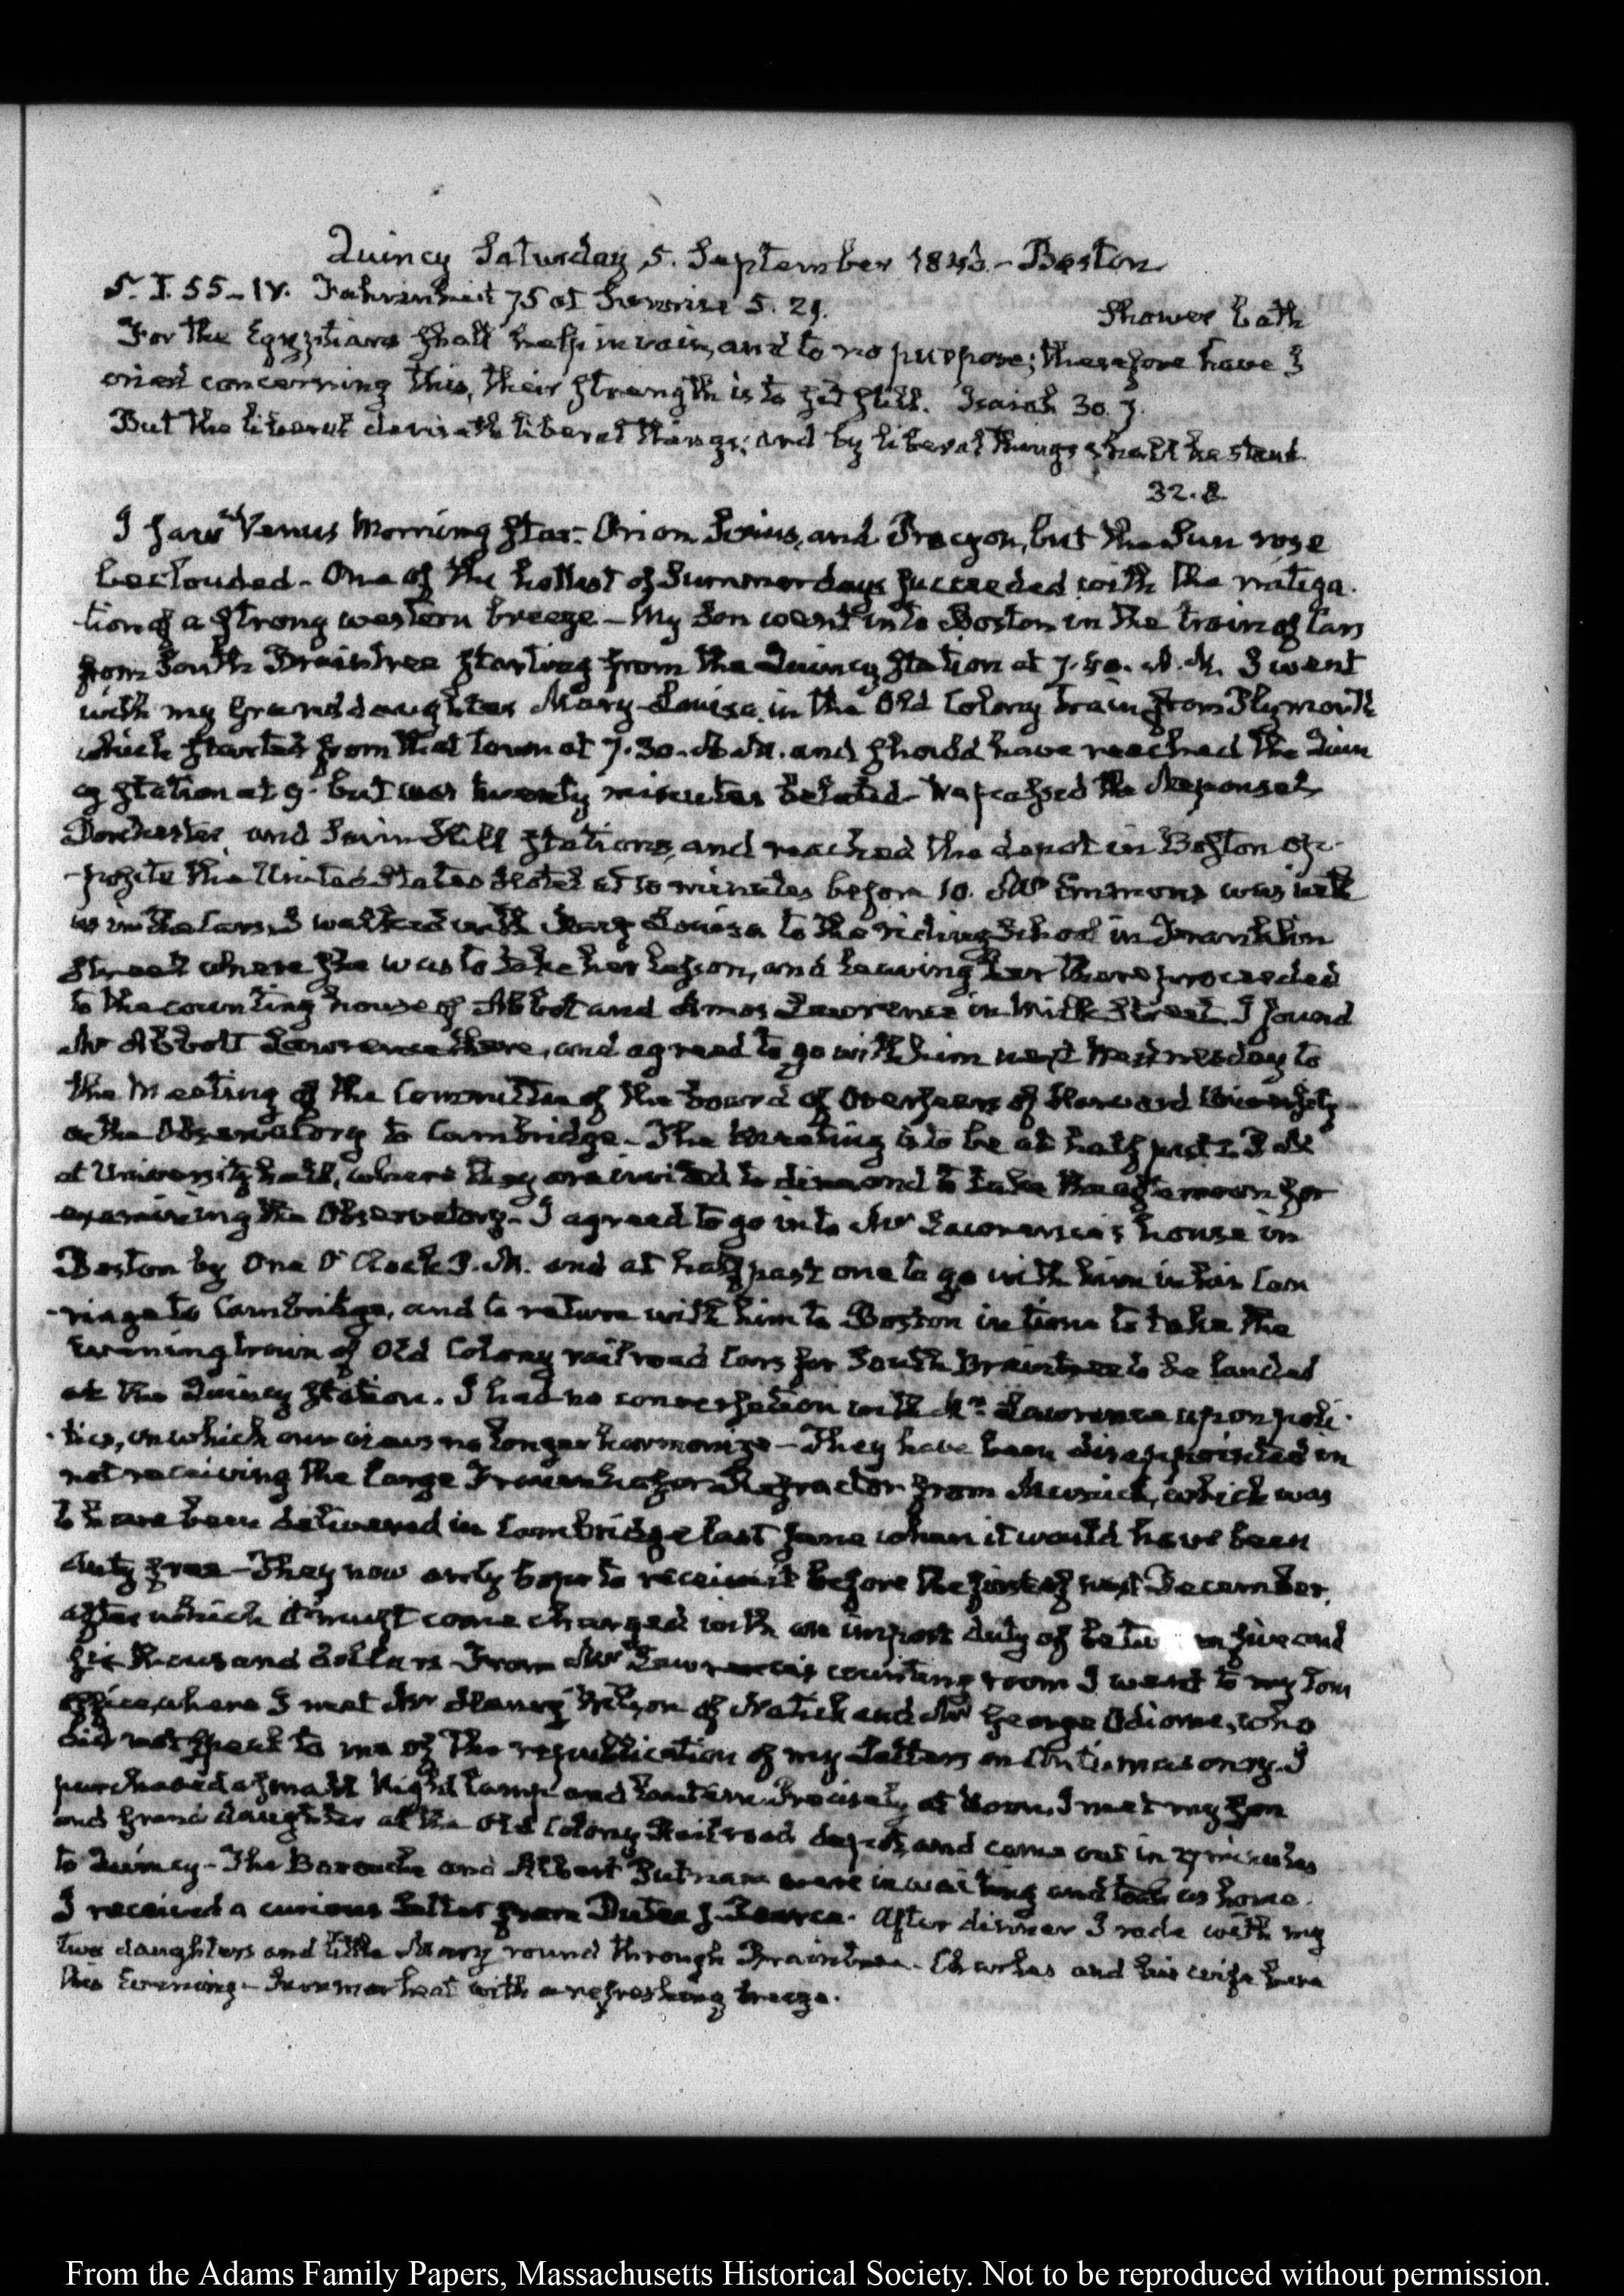 Quincy Saturday 5. September 1846.- Boston
5. I. 55-IV. Fahrenheit 75 at Sunrise 5. 29. Shower bath
For the Egyptians shall help in vain, and to no purpose; therefore have I
cried concerning this, their strength is to sit still. Isaiah 30. 7.
But the liberal deviseth liberal things; and by liberal things shall he stand.
32. 8
I saw Venus Morning star- Orion Sirius, and Procyon, but the Sun rose
beclouded- One of the hottest of Summer days succeeded with the mitiga-
tion of a strong western breeze- My Son went into Boston in the train of Cars
from South Braintree starting from the Quincy Station at 7.40. A.M. I went
with my Granddaughter Mary-Louisa in the Old Colony train from Plymouth
which started from that town at 7.30. A.M. and should have reached the Quin
cy station at 9. but was twenty minutes belated- We passed the Neponset,
Dorchester, and Savin Hill stations, and reached the depot in Boston op-
-posite the United States Hotel at 10 minutes before 10. Mr Emmons was with
us in the Cars. I walked with Mary Louisa to the riding School in Franklin
Street where she was to take her lesson, and leaving her there proceeded
to the counting house of Abbot and Amos Lawrence in Milk Street. I found
Mr Abbott Lawrence there, and agreed to go with him next Wednesday to
the Meeting of the Committee of the board of Overseers of Harvard University
on the Observatory to Cambridge- The meeting is to be at half past 2 P.M.
at University hall, where they are invited to dine and to take the afternoon for
examining the Observatory- I agreed to go into Mr Lawrence's house in
Boston by One O'Clock P.M. and at half past one to go with him in his Car
-riage to Cambridge, and to return with him to Boston in time to take the
Evening train of Old Colony railroad Cars for South Braintree to be landed
at the Quincy Station. I had no conversation with Mr Lawrence upon poli-
-tics, on which our views no longer harmonize- They have been disappointed in
not receiving the large Fraunhofer Refractor from Munich, which was
to have been delivered in Cambridge last June when it would have been
duty free- They now only hope to receive it before the first of next December,
after which it must come charged with an impost duty of between five and
six thousand dollars From Mr Lawrence's counting room I went to my Son's
office, where I met Mr Henry Wilson of Natick and Mr George Odiorne, who
did not speak to me of the republication of my Letters on Antimasonry. I
purchased a small Night lamp and lantern. Precisely at Noon, I met my Son
and Grand daughter at the Old Colony Railroad depot, and came out in 27 minutes
to Quincy- The Barouche and Albert Putnam were in waiting and took us home.
I received a curious Letter from Dutee J. Pearce. After dinner I rode with my
two daughters and little Mary round through Braintree. Charles and his wife here
this Evening- Summer heat with a refreshing breeze.
From the Adams Family Papers, Massachusetts Historical Society. Not to be reproduced without permission.